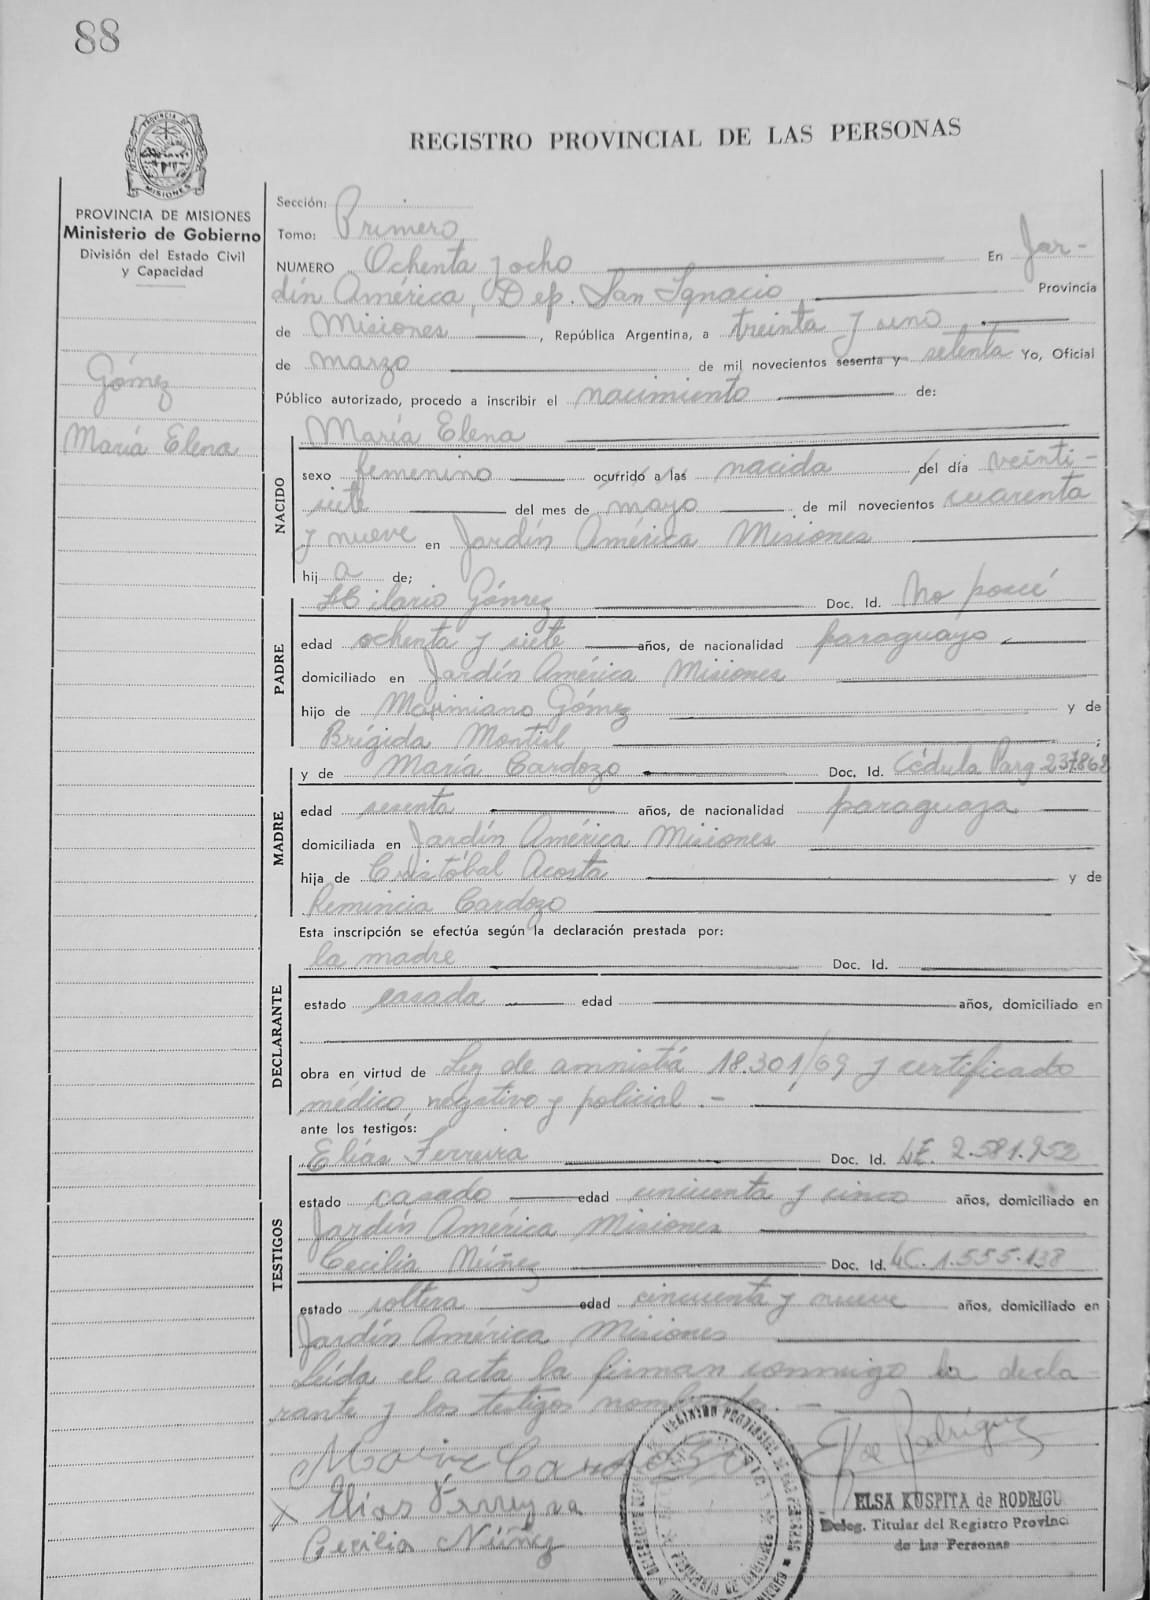 88
REGISTRO PROVINCIAL DE LAS PERSONAS
PROVINCIA DE MISIONES
Ministerio de Gobierno
División del Estado Civil
y Capacidad
Gómez
María Elena
Sección:
Tomo: Primero
NUMERO Ochenta y ocho En Jar-
dín América, Dep. San Ignacio Provincia
de Misiones, República Argentina, a treinta y uno
de marzo de mil novecientos sesenta y setenta Yo, Oficial
Público autorizado, procedo a inscribir el nacimiento de:
María Elena
NACIDO
sexo femenino ocurrido a las nacida del día veinti-
siete del mes de mayo de mil novecientos cuarenta
y nueve en Jardín América Misiones
hij a de;
PADRE
Hilario Gómez Doc. Id. No posee
edad ochenta y siete años, de nacionalidad paraguayo
domiciliado en Jardín América Misiones
hijo de Maximiano Gómez y de
Brígida Montiel;
MADRE
y de María Cardozo Doc. Id. Cédula Parg 237868
edad sesenta años, de nacionalidad paraguaya
domiciliada en Jardín América Misiones
hija de Cristóbal Acosta y de
Remincia Cardozo
Esta inscripción se efectúa según la declaración prestada por:
DECLARANTE
la madre Doc. Id.
estado casada edad años, domiciliado en
obra en virtud de Ley de amnistiá 18.301/69 y certificado
médico, negativo y policial.-
ante los testigos:
TESTIGOS
Elías Ferreira Doc. Id. LE. 2.581.952
estado casado edad cincuenta y cinco años, domiciliado en
Jardín América Misiones
Cecilia Núñez Doc. Id. LC. 1.555.138
estado soltera edad cincuenta y nueve años, domiciliado en
Jardín América Misiones
Leída el acta la firman conmigo la decla-
rante y los testigos nombrados.-
María Cardozo
X Elías Ferreyra
Cecilia Núñez
E K de Rodríguez
ELSA KUSPITA de RODRIGU
Deleg. Titular del Registro Provinci
de las Personas